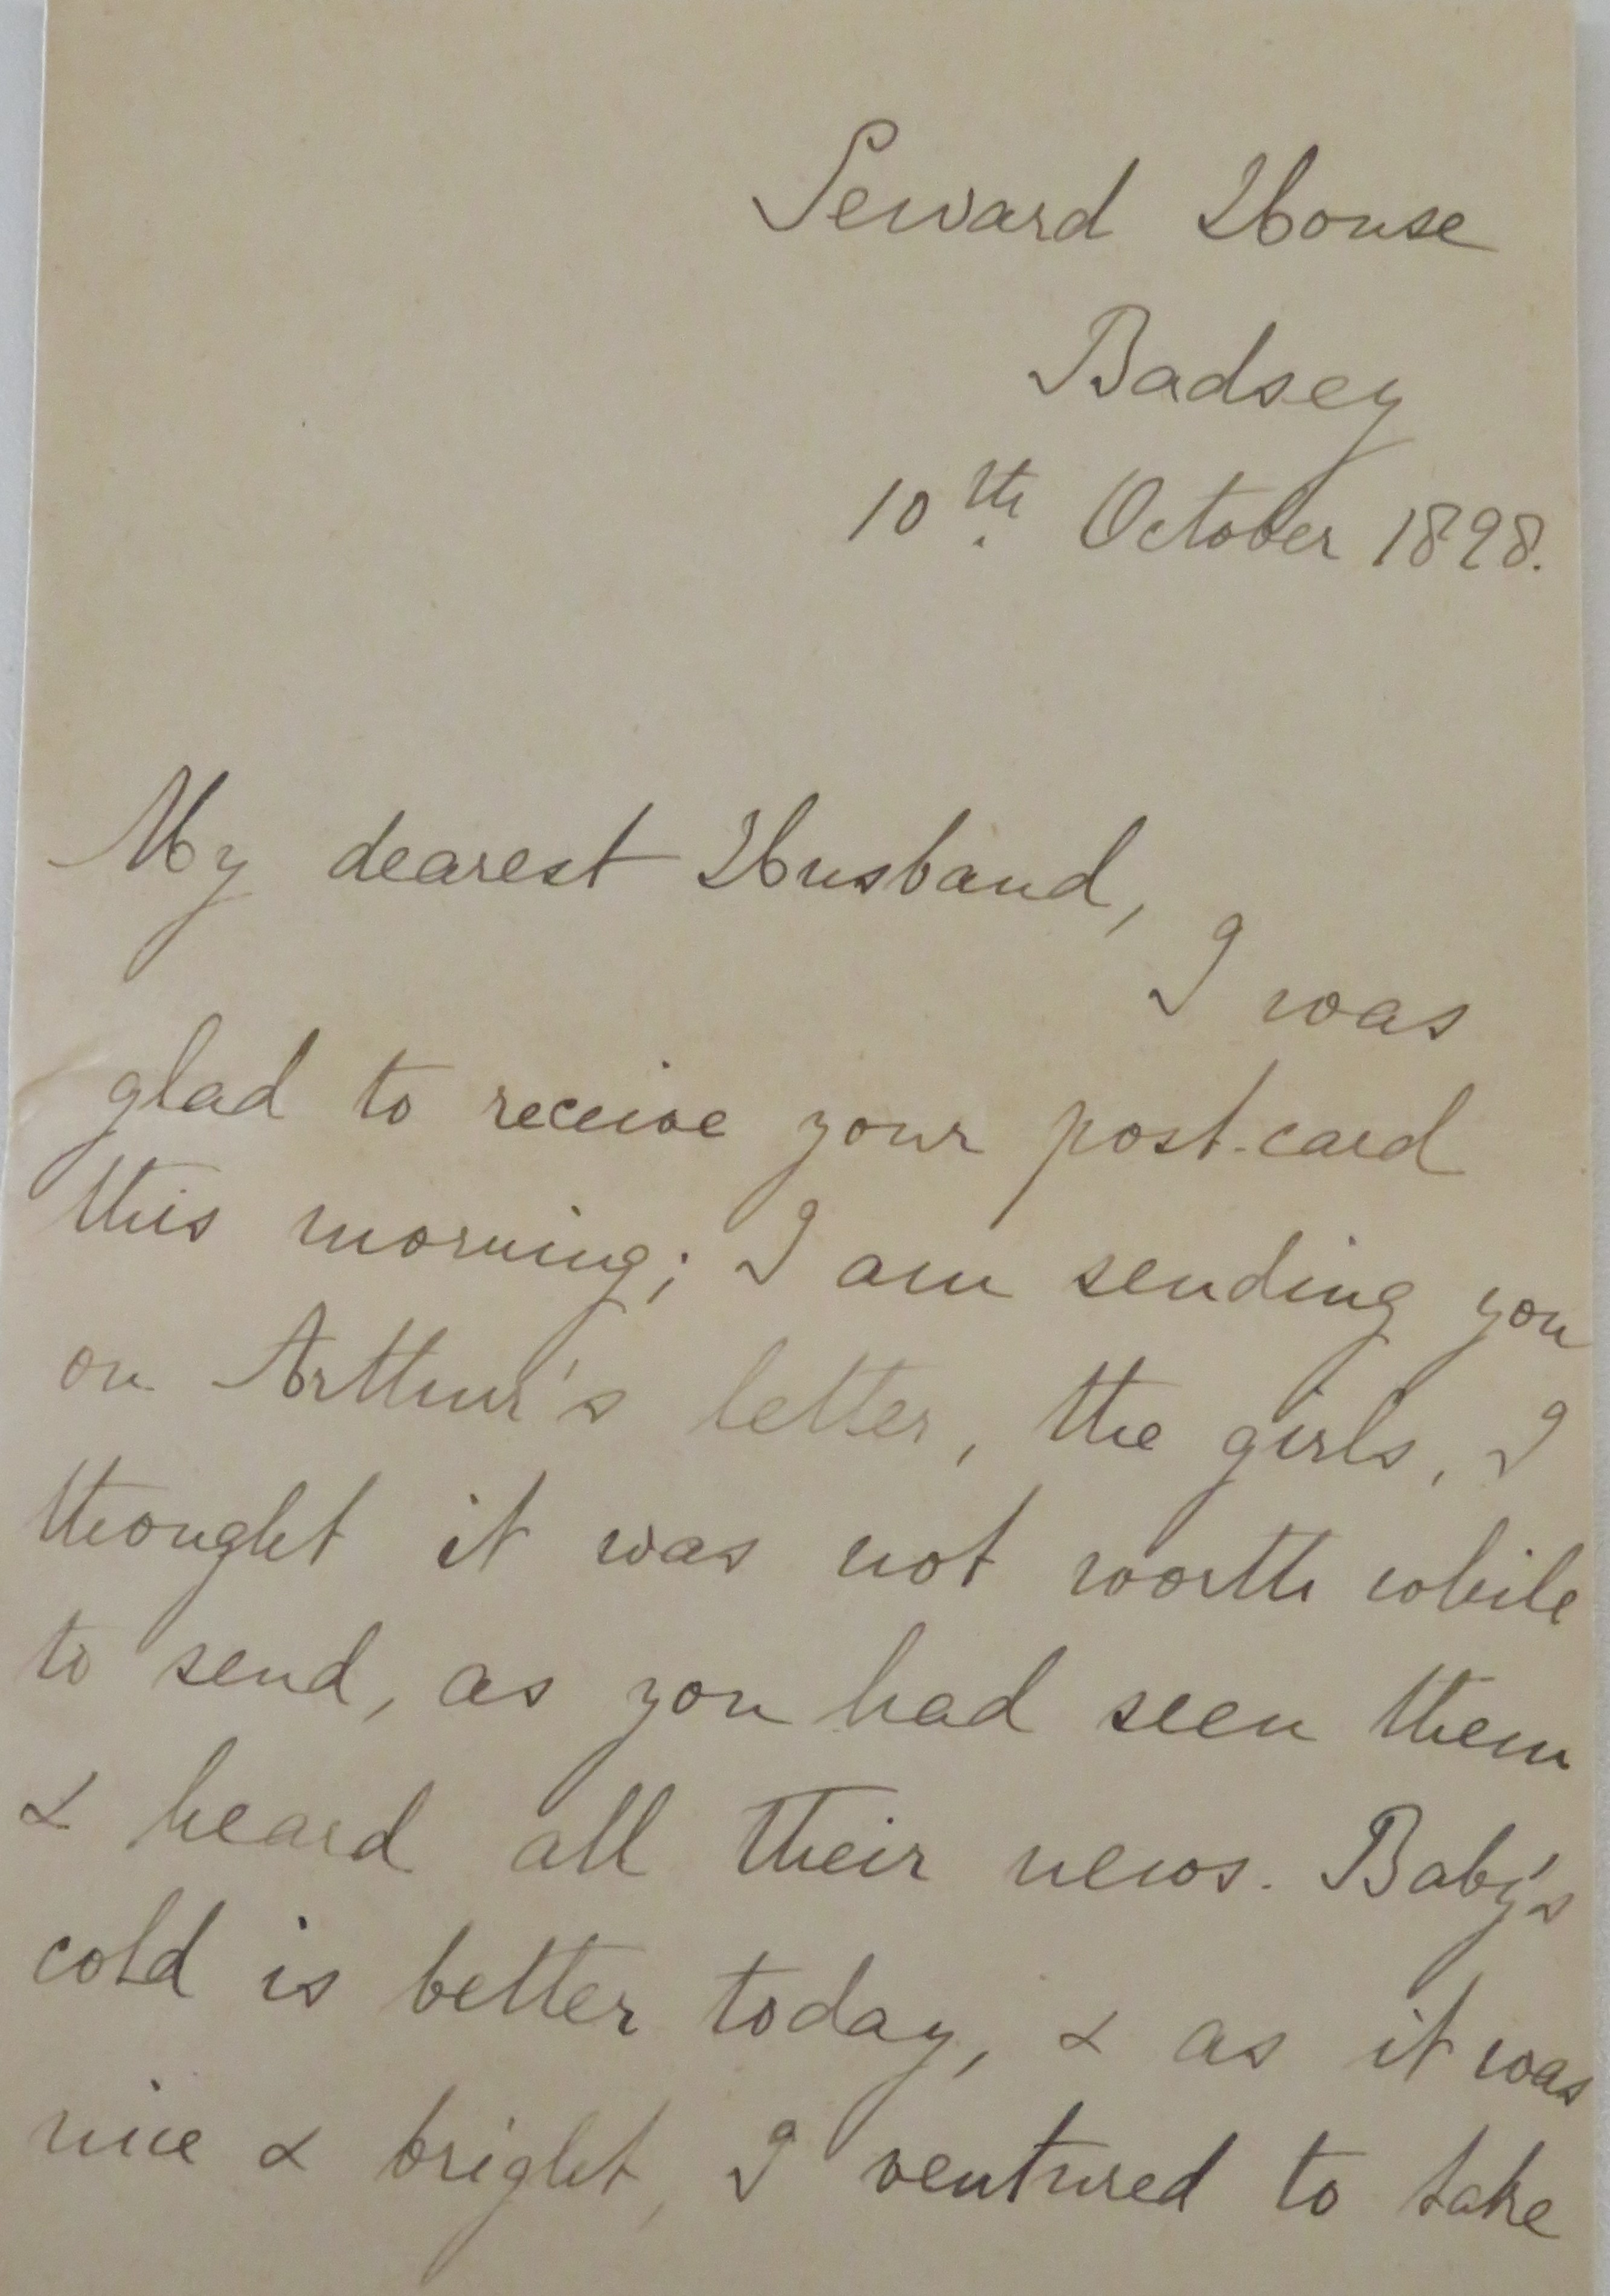 Seward House
Badsey
10th. October 1898.
My dearest Husband,
I was
glad to receive your post-card
this morning; I am sending you
on Arthur's letter, the girls, I
thought it was not worth while
to send, as you had seen them
& heard all their news. Baby's
cold is better today, & as it was
nice & bright, I ventured to take